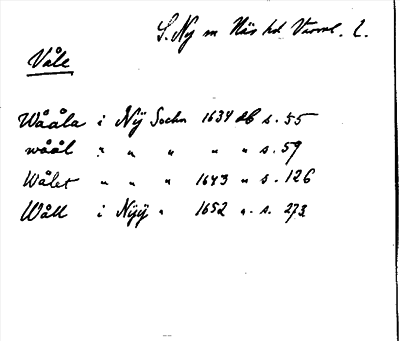 S. Ny sn Näs hd Värml. l.
Våle
Wååla i Nÿ Sochn 1634 db s. 55
wåål " " " " " s. 59
Wålet " " " 1643 " s. 126
Wåll i Nÿÿ " 1652 " s. 273